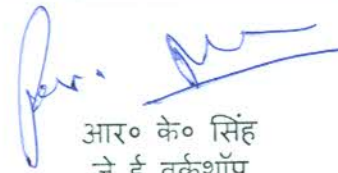 आर० के० सिंह
ने ई वर्कशॉप